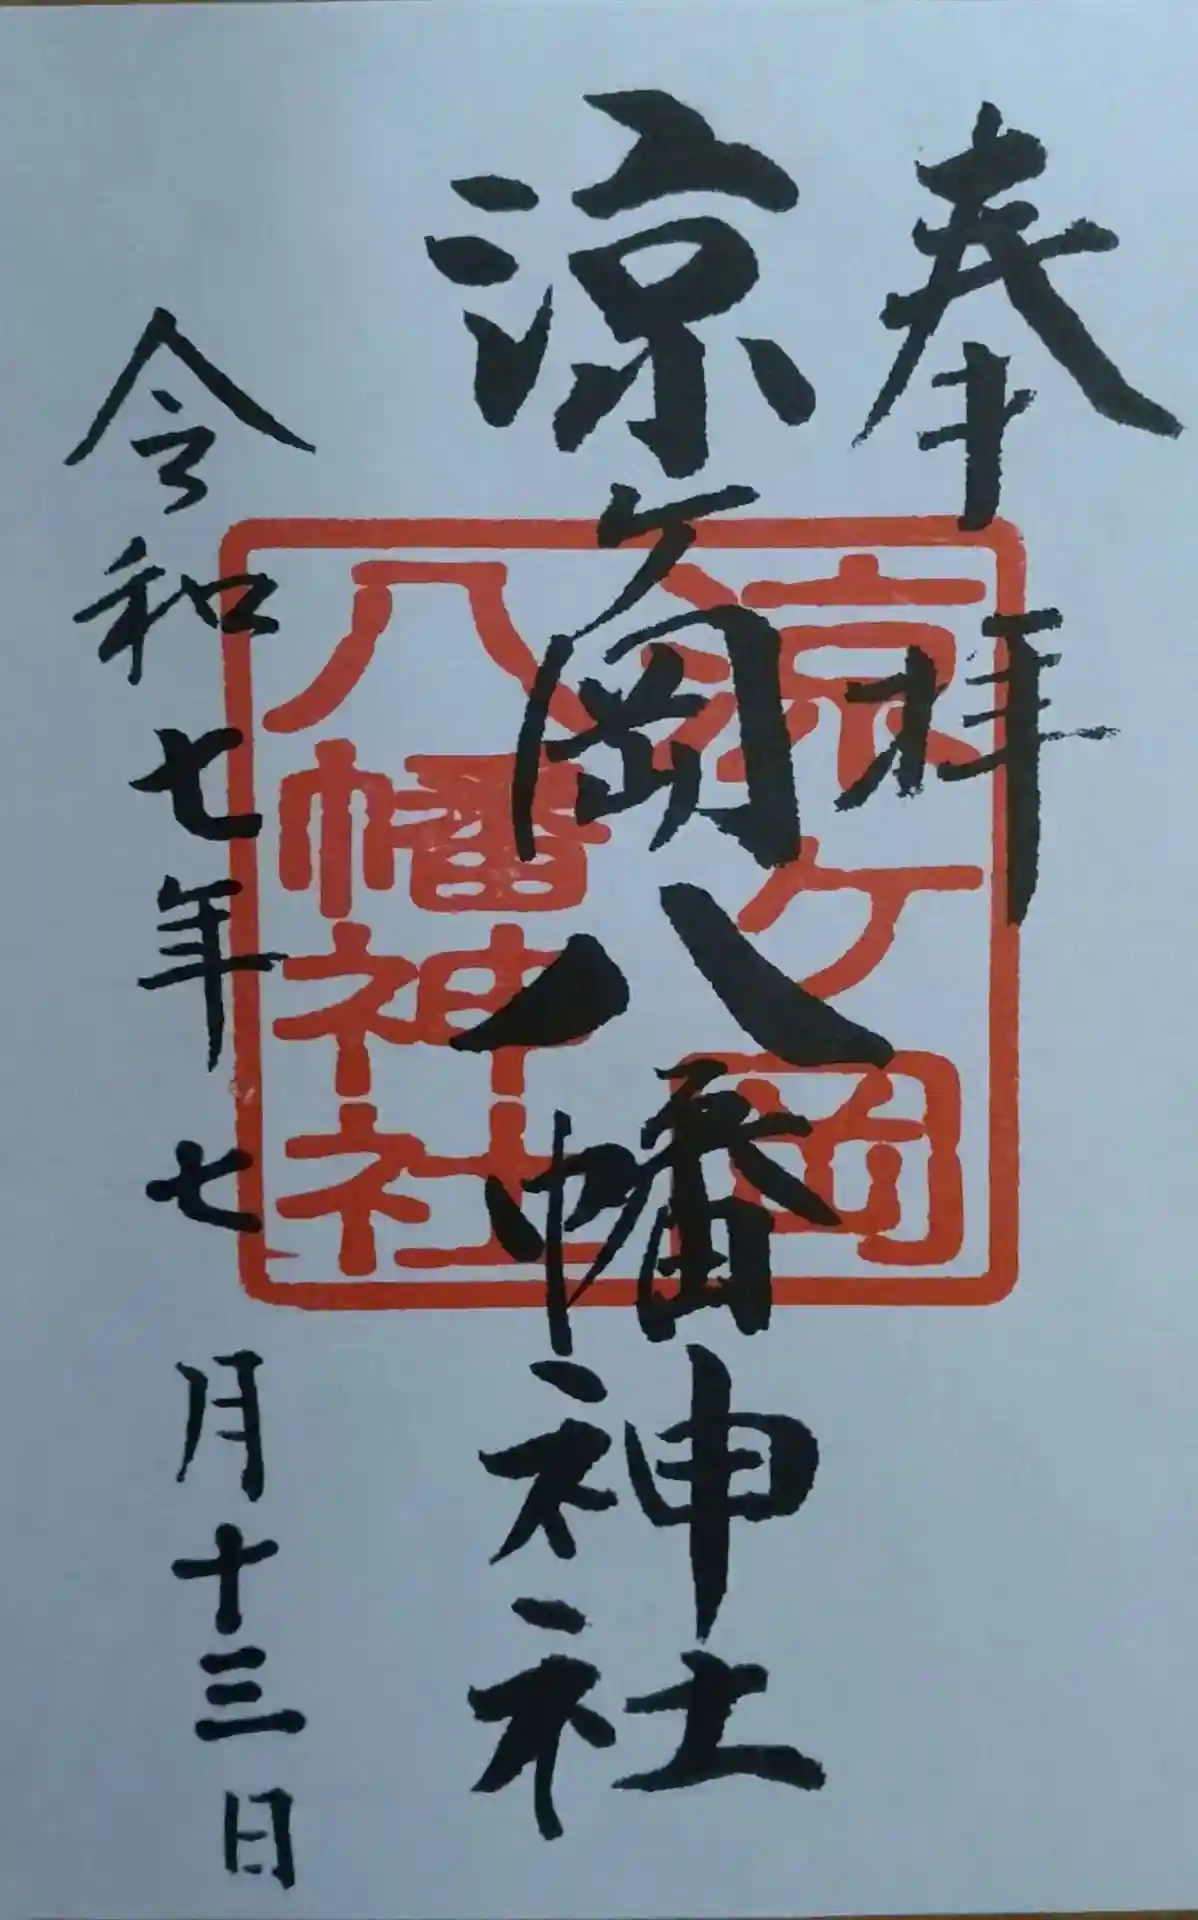 奉拝
涼ケ岡八幡神社
涼ケ岡
八幡神社
令和七年七月十三日